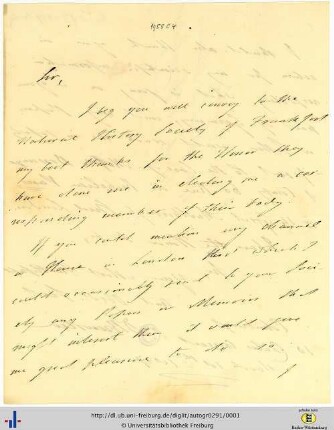 Sir,
I beg you will convey to the
Natural History Society of Frankfort
my best thanks for the Honor they
have done me in electing me a cor
responding member of their body
If you could mention any channel
in London that which I
could occasionally send to your Soci
ety any Papers or Memoirs that
might interest them it would give
me great pleasure to do so
http://dl.ub.uni-freiburg.de/diglit/autogr0291/0001
© Universitätsbibliothek Freiburg
gefördert durch
Baden-Württemberg